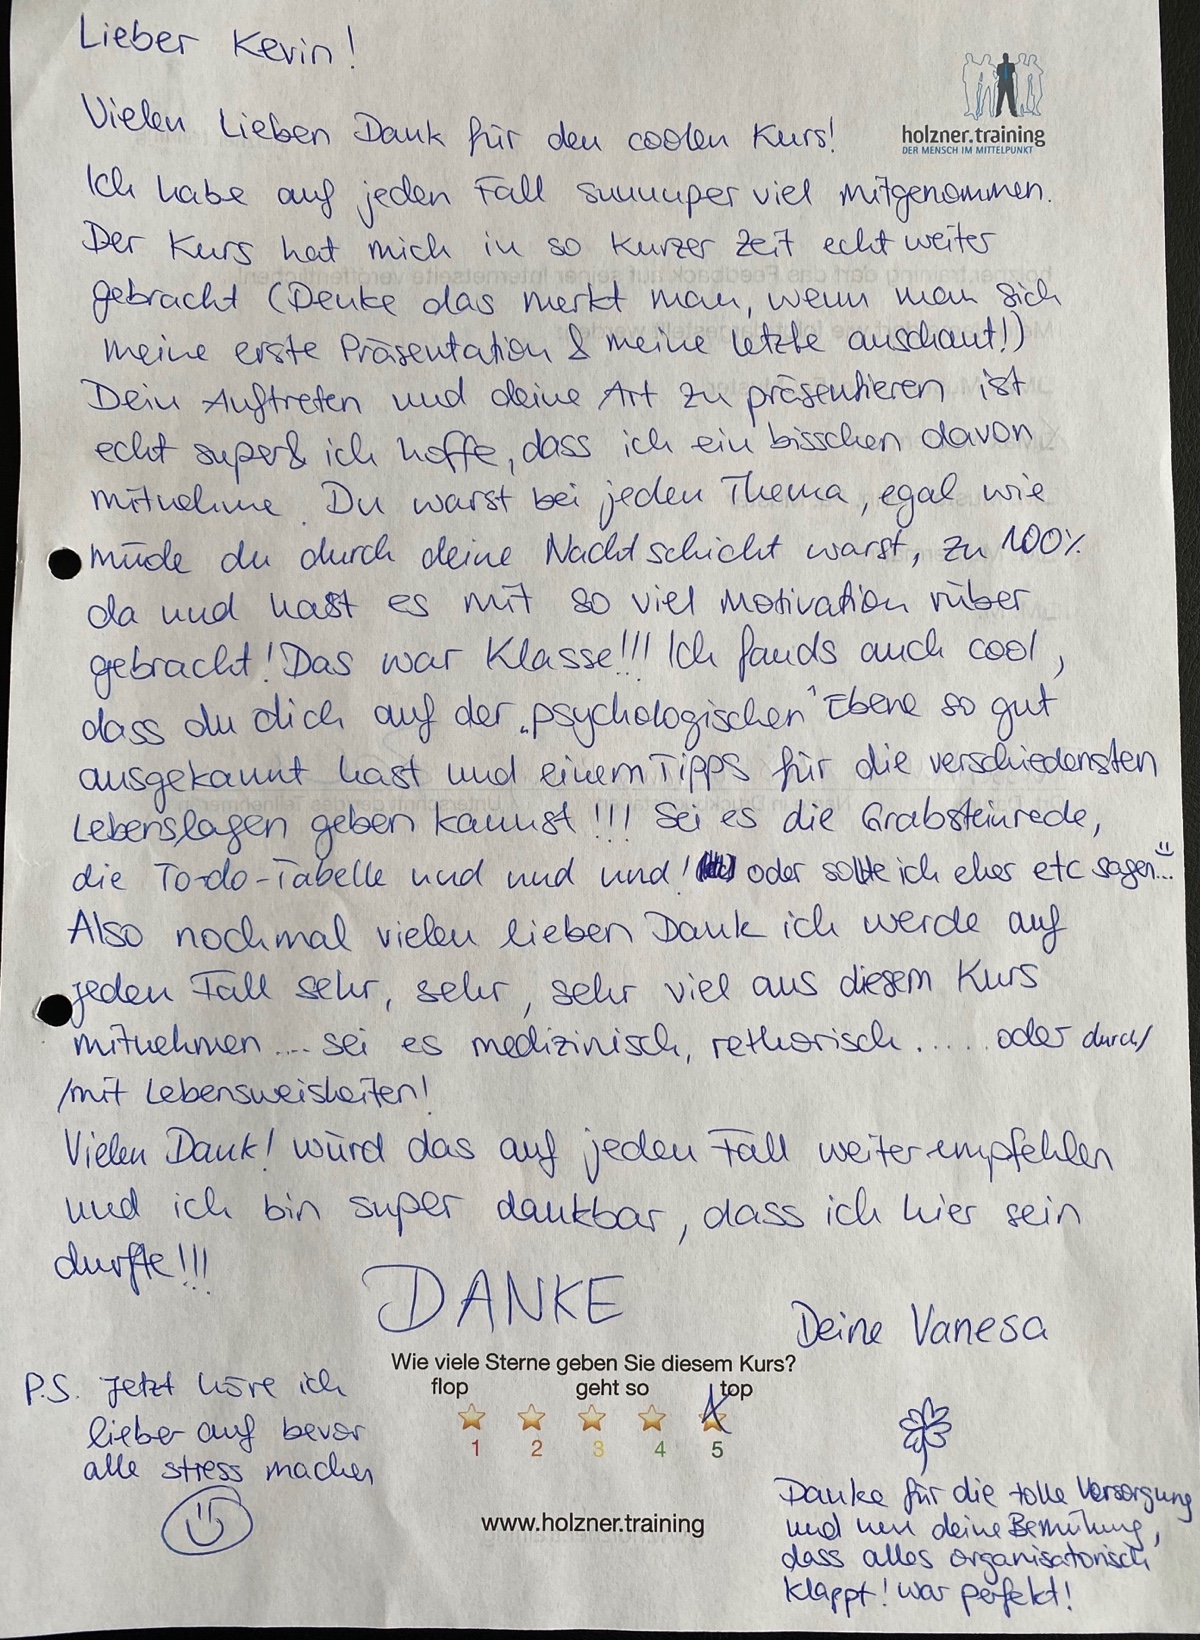 Lieber Kevin!
holzner.training
DER MENSCH IM MITTELPUNKT
Vielen Lieben Dank für den coolen Kurs!
Ich habe auf jeden Fall suuuuper viel mitgenommen.
Der Kurs hat mich in so kurzer Zeit echt weiter
gebracht (Denke das merkt man, wenn man sich
meine erste Präsentation & meine letzte anschaut!)
Dein Auftreten und deine Art zu präsentieren ist
echt super & ich hoffe, dass ich ein bisschen davon
mitnehme. Du warst bei jeden Thema, egal wie
müde du durch deine Nachtschicht warst, zu 100%
da und hast es mit so viel Motivation rüber
gebracht! Das war Klasse!!! Ich fands auch cool,
dass du dich auf der „psychologischen" Ebene so gut
ausgekannt hast und einem Tipps für die verschiedensten
Lebenslagen geben kannst!!! Sei es die Grabsteinrede,
die To-do-Tabelle und und und! oder sollte ich eher etc sagen...
Also nochmal vielen lieben Dank ich werde auf
jeden Fall sehr, sehr, sehr viel aus diesem Kurs
mitnehmen.... sei es medizinisch, rethorisch..... oder durch/
/mit Lebensweisheiten!
Vielen Dank! würd das auf jeden Fall weiterempfehlen
und ich bin super dankbar, dass ich hier sein
durfte!!!
DANKE
Deine Vanesa
Wie viele Sterne geben Sie diesem Kurs?
flop geht so top
1 2 3 4 5
P.S. Jetzt höre ich
lieber auf bevor
alle stress machen
www.holzner.training
Danke für die tolle Versorgung
und deine Bemühung,
dass alles organisatorisch
klappt! war perfekt!